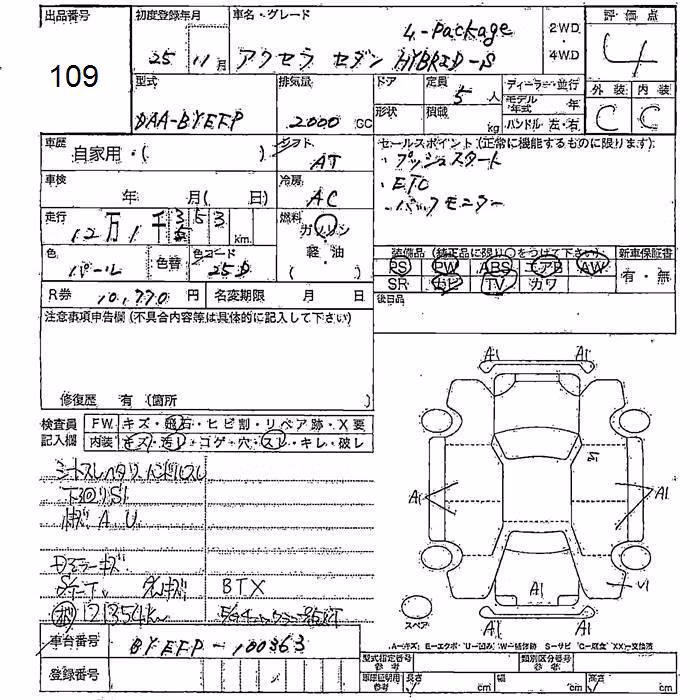 出品番号
109
初度登録年月
25 11月
車名・グレード
L-Package
アクセラ セダン HYBRID-S
2WD
4WD
評価点
4
外装 内装
C C
型式
DAA-BYEFP
排気量
2000 CC
ドア
定員
5人
形状
積載
kg
ディーラー・並行
モデル年式 年
ハンドル 左・右
車歴
自家用・( )
シフト
AT
車検
年 月( 日)
冷房
AC
走行
12万1千353 km
燃料
ガソリン
軽油
( )
色
パール
色替
色コード
25D
R券 10,770 円
名変期限 月 日
セールスポイント(正常に機能するものに限ります)
・プッシュスタート
・ETC
・バックモニター
装備品(純正品に限り○をつけて下さい)
PS PW ABS エアB AW
SR ナビ TV カワ
新車保証書
有・無
後日品
注意事項申告欄(不具合内容等は具体的に記入して下さい)
修復歴 有 (箇所 )
検査員記入欄
FW キズ・飛石・ヒビ割・リペア跡・X要
内装 キズ・汚レ・コゲ・穴・スレ・キレ・破レ
シートスレ ヘタリ ハンドルスレ
下回りS1
キズ A U
Dミラーキズ
BTX
121354km
A1 A1
A1 A1
A1 U1
A1 A1
スペア
A-キズ E-エクボ U-凹み W-補修跡 S-サビ C-腐食 XX-交換済
車台番号
BYEFP-100363
登録番号
型式指定番号 参考
類別区分番号 参考
車庫証明用 参考
長さ cm
幅 cm
高さ cm